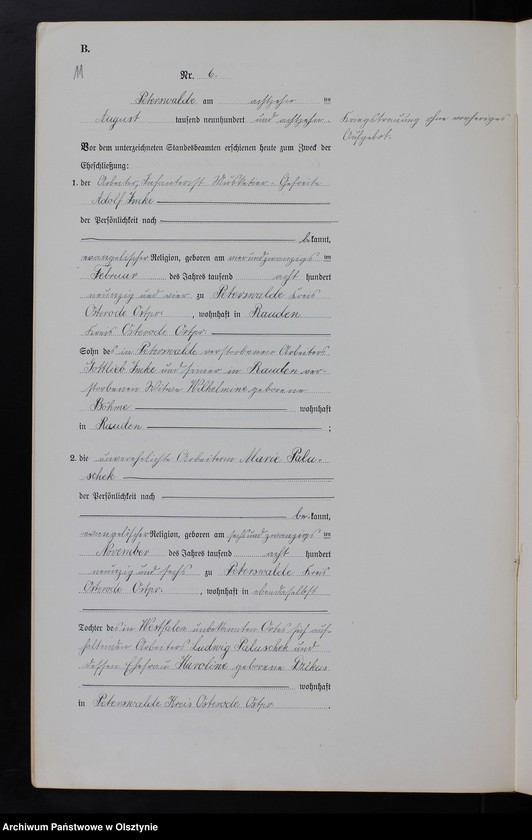 B.
Nr. 6.
Peterswalde am achtzehn ten
August tausend neunhundert und achtzehn.
Kriegstrauung ohne vorheriges
Aufgebot.
Vor dem unterzeichneten Standesbeamten erschienen heute zum Zweck der
Eheschließung:
1. der Arbeiter, Musketier-Gefreite
Adolf
der Persönlichkeit nach
bekannt,
evangelischer Religion, geboren am vierundzwanzigs ten
Februar des Jahres tausend acht hundert
neunzig und vier zu Peterswalde Kreis
Osterode Ostpr. , wohnhaft in Rauden
Kreis Osterode Ostpr.
Sohn des in Peterswalde verstorbenen Arbeiters
Gottlieb und seiner in Rauden ver-
storbenen Witwe Wilhelmine geborene
Böhme wohnhaft
in Rauden ;
2. die unverehelichte Arbeiterin Marie Palu-
schek
der Persönlichkeit nach
bekannt,
evangelischer Religion, geboren am sechsundzwanzigs ten
November des Jahres tausend acht hundert
neunzig und sechs zu Peterswalde Kreis
Osterode Ostpr. , wohnhaft in ebendaselbst
Tochter des in Westfalen unbekannten Ortes sich auf-
haltenden Arbeiters Ludwig Paluschek und
dessen Ehefrau Karoline geborene
wohnhaft
in Peterswalde Kreis Osterode Ostpr.
Archiwum Państwowe w Olsztynie